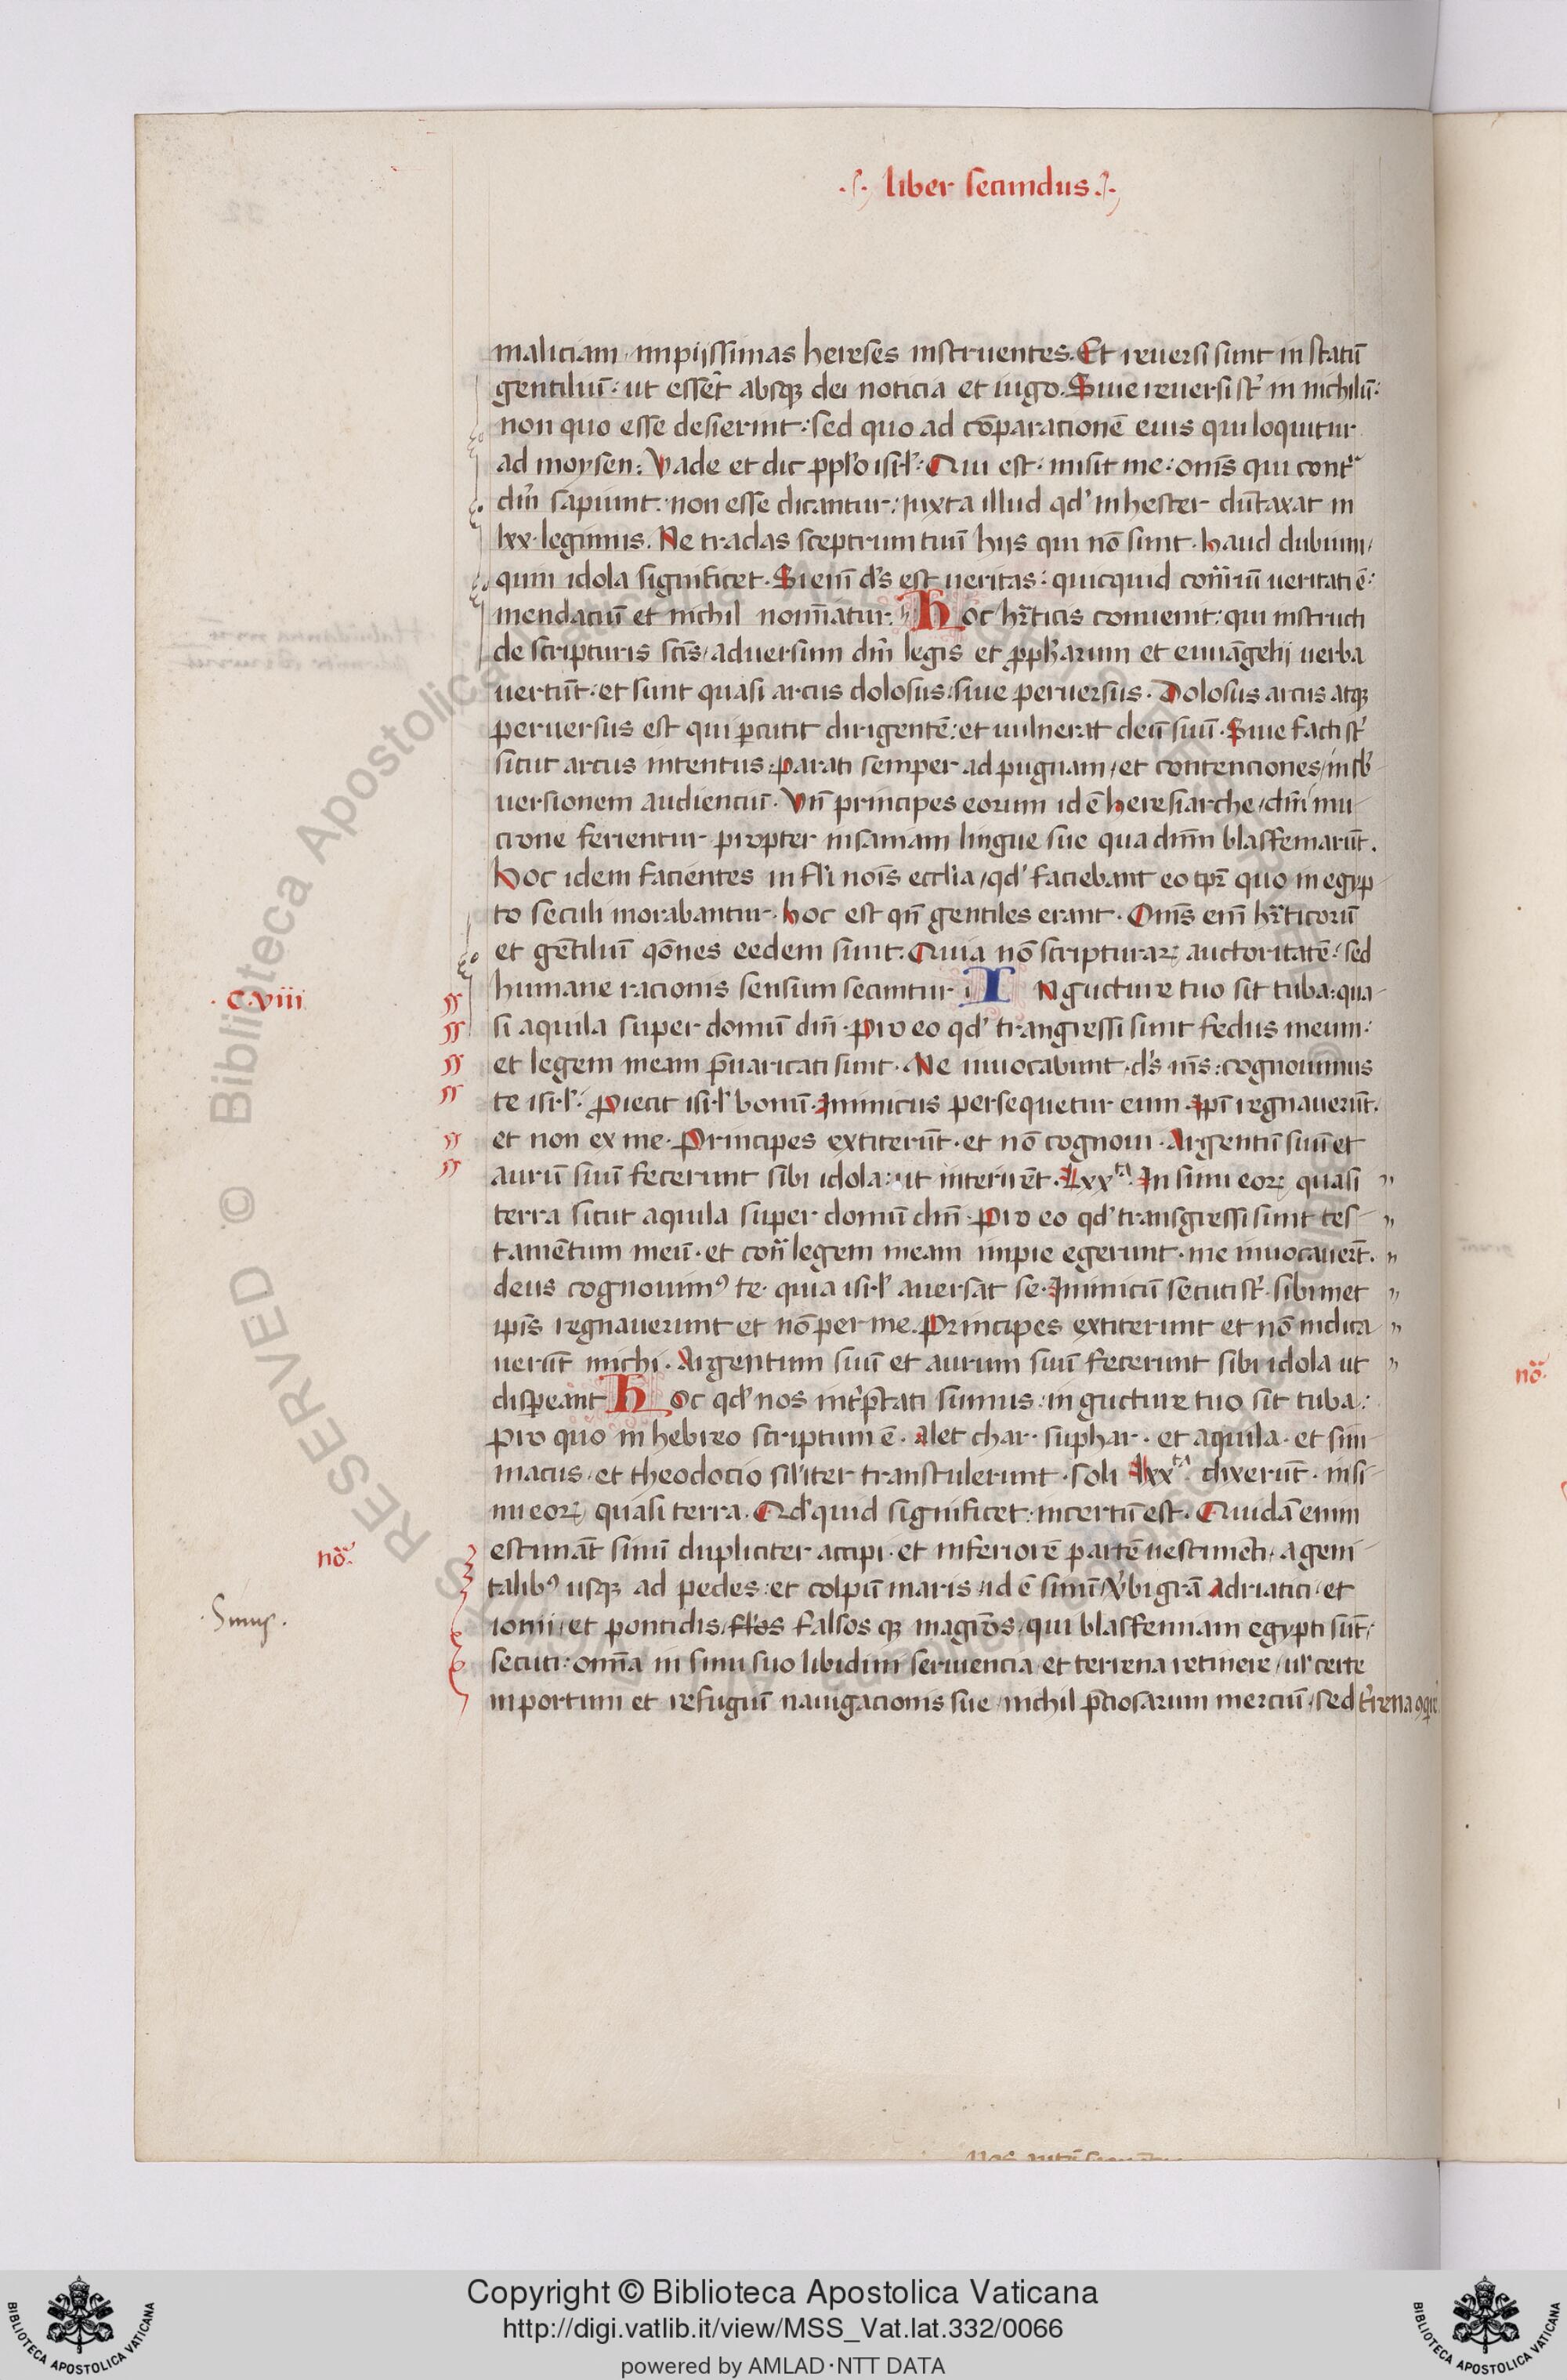 liber secundus
maliciam impijssimas hereses instruentes. Et reuersi sunt in statū
gentiliū. ut essēt absq; dei noticia et iugo. Siue reuersi sr̄ in nichilū:
non quo esse desierint: sed quo ad cōparacionē eius qui loquitur
ad moysen: Vade et dic pplo isrl: Qui est. misit me: om̄s qui cont
dn̄m sapiunt. non esse dicantur: iuxta illud qd' in hester dūtaxat in
lxx. legimus. Ne tradas sceptrum tuū hijs qui nō sunt. haud dubium
qum idola significet. Si eni ds est ueritas: quicquid cont̄riū ueritati ē:
mendaciū et nichil nomīatur. Hoc hr̄ticis conuenit: qui instructi
de scripturis scīs aduersum dn̄m legis et pph̄arum et euuāgelij uerba
uertūt. et sunt quasi arcus dolosus: siue peruersus. Dolosus arcus atq;
peruersus est qui pcutit dirigentē: et uulnerat deū suū. Siue facti sr̄
sicut arcus intentus: parati semper ad pugnam et contenciones in sb
uersionem audienciū. Vn̄ principes eorum id ē heresiarche dn̄i mu
crone ferientur propter insaniam lingue sue qua dn̄m blasfemarūt.
Hoc idem facientes in xp̄i nois ecclia qd' faciebant eo tpr̄ quo in egyp
to seculi morabantur. hoc est qn̄ gentiles erant. Om̄s eni hr̄ticorū
et gētiliū qōnes eedem sunt. Quia nō scripturaꝝ auctoritatē: sed
humane racionis sensum secuntur. IN gucture tuo sit tuba: qua
C. viii
si aquila super domū dn̄i. Pro eo qd' trangressi sunt fedus meum.
et legem meam p̄uaricati sunt. Me inuocabunt. ds ms: cognouimus
te isrl. Proiecit isrl bonū. Inimicus persequetur eum. Ipī regnauerūt.
et non ex me. Principes extiterūt. et nō cognoui. Argentū suū et
aurū suū fecerunt sibi idola: ut interirēt. Lxxta. In sinu eoꝝ quasi
terra sicut aquila super domū dn̄i. Pro eo qd' transgressi sunt tes
tamētum meū. et cont̄ legem meam impie egerunt. me inuocauert̄.
deus cognouimꝰ te. quia isrl auersat se. Inimicū secuti sr̄. sibimet
ipīs regnauerunt et nō per me. Principes extiterunt et nō indica
uerūt michi. Argentum suū et aurum suū fecerunt sibi idola ut
dispeānt Hoc qd' nos int̄p̄tati sumus. in gucture tuo sit tuba:
pro quo in hebreo scriptum ē. alet char. suphar. et aquila. et sim
macus et theodocio sil'iter transtulerunt. soli lxxta dixerūt. in si
nu eoꝝ quasi terra. Qd' quid significet: incertū est. Quidā enim
estimāt sinū dupliciter accipi. et inferiorē partē uestimēti a geni
no.
talibꝰ usq; ad pedes: et colpū maris id ē sinū. Vbi grā Adriatici et
Sinus.
ionii et pontidis falsos q; magrōs qui blasfemiam egypti sūt
secuti: om̄ia in sinu suo libidini seruiencia et terrena retinere ul' certe
in portum et refugiū nauigacionis sue nichil p̄ciosarum merciū sed
no.
Copyright © Biblioteca Apostolica Vaticana
http://digi.vatlib.it/view/MSS_Vat.lat.332/0066
powered by AMLAD·NTT DATA